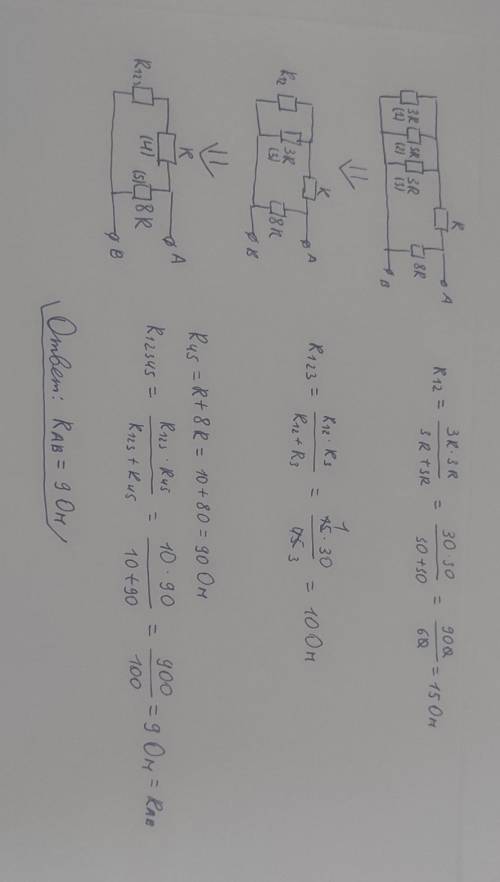 3R 3R 3R R 8R A B
(1) (2) (3)
R12 = 3R·3R / 3R+3R = 30·30 / 30+30 = 900 / 60 = 15 Ом
R12 3R R 8R A B
(3)
R123 = R12·R3 / R12+R3 = 15·30 / 45 3 = 10 Ом
1
R123 R 8R A B
(4) (5)
R45 = R+8R = 10+80 = 90 Ом
R12345 = R123·R45 / R123+R45 = 10·90 / 10+90 = 900 / 100 = 9 Ом = RAB
Ответ: RAB = 9 Ом